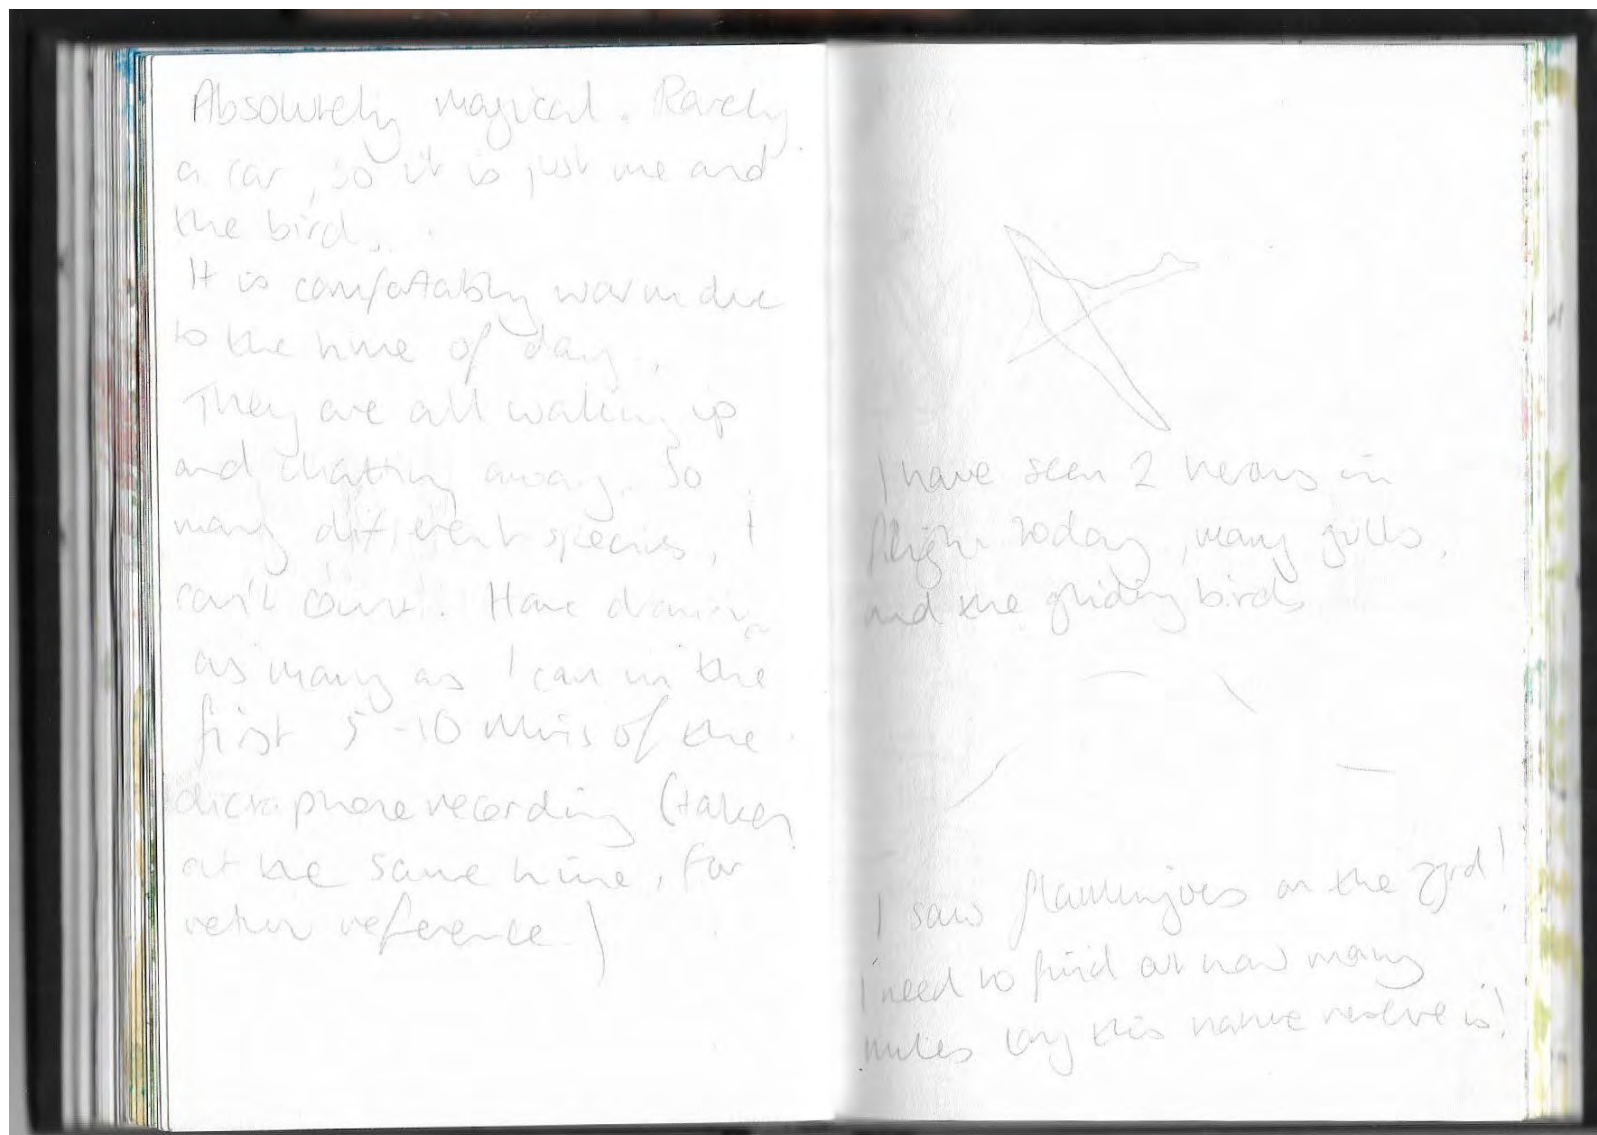 Absolutely magical. Rarely
a car, so it is just me and
the birds.
It is comfortably warm due
to the time of day.
They are all waking up
and chatting away. So
many different species, I
can't count. Have drawn
as many as I can in the
first 5-10 mins of the
dictaphone recording (taken
at the same time, for
return reference)
I have seen 2 herons in
flight today, many gulls,
and the gliding birds
I saw flamingoes on the 23rd!
I need to find out how many
miles long this nature reserve is!